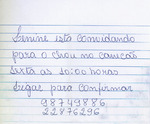 Lenine está convidando
para o show no canecão
sexta as 20:00 horas
Ligar para confirmar
98749886
22876296